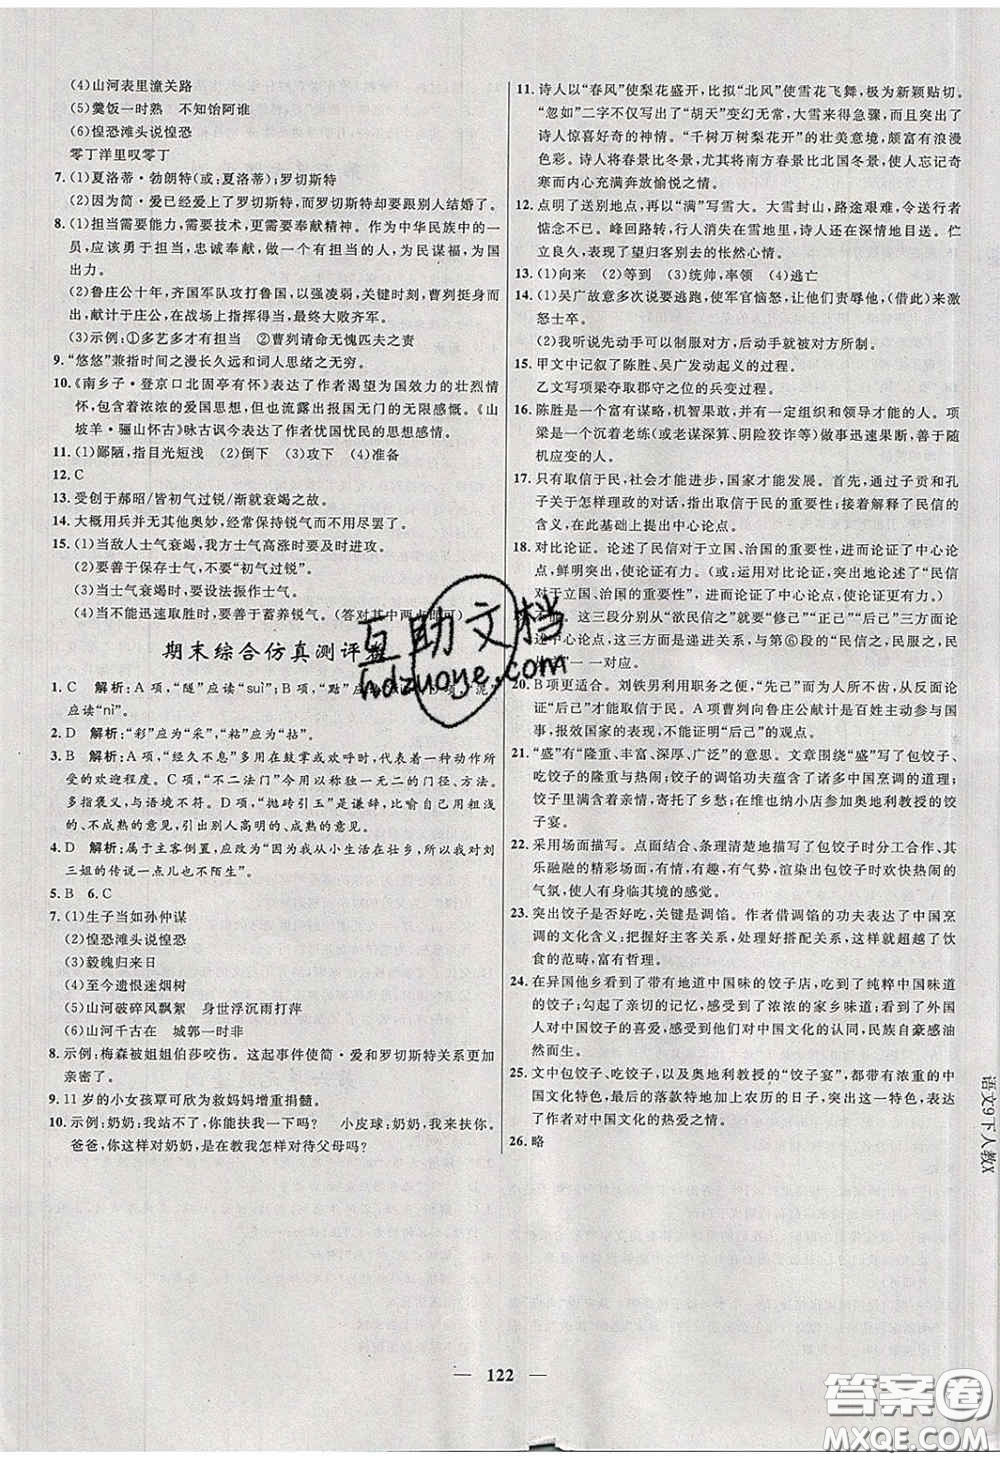 (4)山河表里潼关路
(5)羹饭一时熟　不知饴阿谁
(6)惶恐滩头说惶恐
零丁洋里叹零丁
7. (1)夏洛蒂·勃朗特(或:夏洛蒂);罗切斯特
(2)因为简·爱已经爱上了罗切斯特,而罗切斯特却要跟别人结婚了。
8. (1)担当需要能力,需要技术,更需要奉献精神。作为中华民族中的一
员,应该勇于担当,忠诚奉献,做一个有担当的人,为民谋福,为国
出力。
(2)鲁庄公十年,齐国军队攻打鲁国,以强凌弱,关键时刻,曹刿挺身而
出,献计于庄公,在战场上指挥得当,最终大败齐军。
(3)示例:①多艺多才有担当　②曹刿请命无愧匹夫之责
9. “悠悠”兼指时间之漫长久远和词人思绪之无穷。
10. 《南乡子·登京口北固亭有怀》表达了作者渴望为国效力的壮烈情
怀,包含着浓浓的爱国思想,但也流露出报国无门的无限感慨。《山
坡羊·骊山怀古》咏古讽今表达了作者忧国忧民的思想感情。
11. (1)鄙陋,指目光短浅　(2)倒下　(3)攻下　(4)准备
12. C
13. 受创于郝昭/皆初气过锐/渐就衰竭之故。
14. 大概用兵并无其他奥妙,经常保持锐气而不用尽罢了。
15. (1)当敌人士气衰竭,我方士气高涨时要及时进攻。
(2)要善于保存士气,不要“初气过锐”。
(3)当士气衰竭时,要设法振作士气。
(4)当不能迅速取胜时,要善于蓄养锐气。(答对其中两点即可)
期末综合仿真测评卷
1. C　解析:A 项,“隧”应读“suì”;B 项,“黠”应读
应读“nì”。
2. D　解析:“彩”应为“采”,“粘”应为“拈”。
3. B　解析:A 项,“经久不息”多用在鼓掌或欢呼时,代表着一种动作所
受的欢迎程度。C 项,“不二法门”今用来比喻独一无二的门径、方法。
多指褒义,与语境不符。D 项,“抛砖引玉”是谦辞,比喻自己用粗浅
的、不成熟的意见,引出别人高明的、成熟的意见。
4. D　解析:属于主客倒置,应改为“因为我从小生活在壮乡,所以我对刘
三姐的传说一点儿也不陌生”。
5. B　6. C
7. (1)生子当如孙仲谋
(2)惶恐滩头说惶恐
(3)毅魄归来日
(4)至今遗恨迷烟树
(5)山河破碎风飘絮　身世浮沉雨打萍
(6)山河千古在　城郭一时非
8. 示例:梅森被姐姐伯莎咬伤。这起事件使简·爱和罗切斯特关系更加
亲密了。
9. 11 岁的小女孩覃可欣为救妈妈增重捐髓。
10. 示例:奶奶:我站不了了,你能扶我一下吗?　小皮球:奶奶,我来扶你。
爸爸,你对奶奶,是在教我怎样对待父母吗?
11. 诗人以“春风”使梨花盛开,比拟“北风”使雪花飞舞,极为新颖贴切。
“忽如”二字不仅写出了“胡天”变幻无穷,大雪来得急骤,而且传出了
诗人惊喜好奇的神情。“千树万树梨花开”的壮美意境,颇富有浪漫
色彩。诗人将春景比冬景,尤其将南方春景比北国冬景,几使人忘记奇
寒而内心充满奔放愉悦之情。
12. 点明了送别地点,再以“满”写雪大。大雪封山,路途艰难,令送行者
惦念不已。峰回路转,行人消失在雪地里,诗人还在深情地目送。伫
立良久,表现了望归客别去的怅然心情。
13. (1)向来　(2)等到　(3)统帅,率领　(4)逃亡
14. (1)吴广故意多次说要逃跑,使军官恼怒,让他们责辱他,(借此)来激
怒士卒。
(2)我听说先动手可以制服对方,后动手就要被对方所制。
15. 甲文中记叙了陈胜、吴广发动起义的过程。
乙文写项梁夺取郡守之位的兵变过程。
16. 陈胜是一个富有谋略,机智果敢,并有一定组织和领导才能的人。项
梁是一个沉着老练(或老谋深算、阴险狡诈等)做事迅速果断,善于随
机应变的人。
17. 只有取信于民,社会才能进步,国家才能发展。首先,通过子贡和孔
子关于怎样理政的对话,指出取信于民的重要性;接着解释了民信的
含义,在此基础上提出中心论点。
18. 对比论证。论述了民信对于立国、治国的重要性,进而论证了中心论
点,鲜明突出,使论证有力。(或:运用对比论证,论述了“民信
对于立国、治国的重要性,进而论证了中心论点,使论证更有力。)
这三段分别从“欲民信之”就要“修己”“正己”“后己”
中心论点,这三方面是递进关系,与第⑥段的“民信之,民服之,民
一一对应。
20. B 项更适合。刘铁男利用职务之便,“先己”而为人所不齿,从反面论
证“后己”才能取信于民。A 项曹刿向鲁庄公献计是百姓主动参与国
事,报效国家的表现,不能证明“后己”的观点。
21. “盛”有“隆重、丰富、深厚、广泛”的意思。文章围绕“盛”写了包饺子、
吃饺子的隆重与热闹;饺子的调馅功夫蕴含了诸多中国烹调的道理;
饺子里满含着亲情,寄托了乡愁;在维也纳小店参加奥地利教授的饺
子宴。
22. 采用场面描写。点面结合、条理清楚地描写了包饺子时分工合作、其
乐融融的精彩场面,有情,有趣,有爱,渲染出包饺子时欢快热闹的
气氛,使人有身临其境的感觉。
23. 突出饺子是否好吃,关键是调馅。作者借调馅的功夫表达了中国烹
调的文化含义:把握好主客关系,处理好搭配关系,这样就超越了饮
食的范畴,富有哲理。
24. 在异国他乡看到了带有地道中国味的饺子店,吃到了纯粹中国味的
饺子;勾起了亲切的记忆,感受到了浓浓的家乡味道;看到了外国
人对中国饺子的喜爱,感受到了他们对中国文化的认同,民族自豪感油
然而生。
25. 文中包饺子、吃饺子,以及奥地利教授的“饺子宴”,都带有浓重的中国
文化特色,最后的落款特地加上农历的日子,突出这一特色,表达
了作者对中国文化的热爱之情。
26. 略
语文9下人教X
122
互助文档
hdzuoye.com
答案圈
MXQE.COM